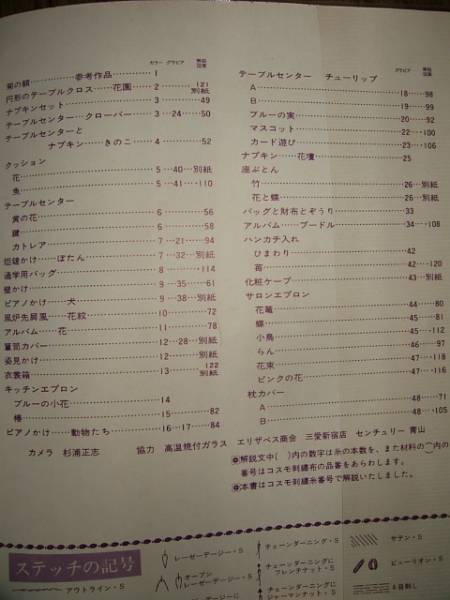 カラー グラビア 解説図案
菊の額……………参考作品 1
円形のテーブルクロス……花園 2 ……121 別紙
ナプキンセット 3 ……49
テーブルセンター…クローバー 3 …24 ……50
テーブルセンターと
ナプキン……きのこ 4 ……52
クッション
花 5 …40…別紙
魚 5 …41……110
テーブルセンター
黄の花 6 ……56
鍵 6 ……58
カトレア 7 …21……94
炬燵かけ……ぼたん 7 …32…別紙
通学用バッグ 8 ……114
壁かけ 9 …35……61
ピアノかけ……犬 9 …38…別紙
風炉先屏風……花紋 10 ……72
アルバム……花 11 ……78
箪笥カバー 12 …28…別紙
姿見かけ 12 ……別紙
衣裳箱 13 ……122 別紙
キッチンエプロン
ブルーの小花 14
椿 15 ……82
ピアノかけ……動物たち 16 …17……84
グラビア 解説図案
テーブルセンター チューリップ
A 18 ……98
B 19 ……99
ブルーの実 20 ……92
マスコット 22 ……100
カード遊び 23 ……106
ナプキン……花壇 25
座ぶとん
竹 26 …別紙
花と蝶 26 …別紙
バッグと財布とぞうり 33
アルバム……プードル 34 ……108
ハンカチ入れ
ひまわり 42
苺 42 ……120
化粧ケープ 43 …別紙
サロンエプロン
花篭 44 ……80
蝶 45 ……81
小鳥 45 ……112
らん 46 ……97
花束 47 ……118
ピンクの花 47 ……116
枕カバー
A 48 ……71
B 48 ……105
カメラ 杉浦正志 協力 高温焼付ガラス エリザベス商会 三愛新宿店 センチュリー 青山
●解説文中( )内の数字は糸の本数を、また材料の⌒内の
番号はコスモ刺繍布の品番をあらわします。
●本書はコスモ刺繍糸番号で解説いたしました。
ステッチの記号
アウトライン・S
レーゼーデージー・S
オープン
レーゼーデージー・S
チェーンダーニング・S
チェーンダーニングに
フレンチナット・S
チェーンダーニングに
ジャーマンナット・S
サテン・S
ビューリオン・S